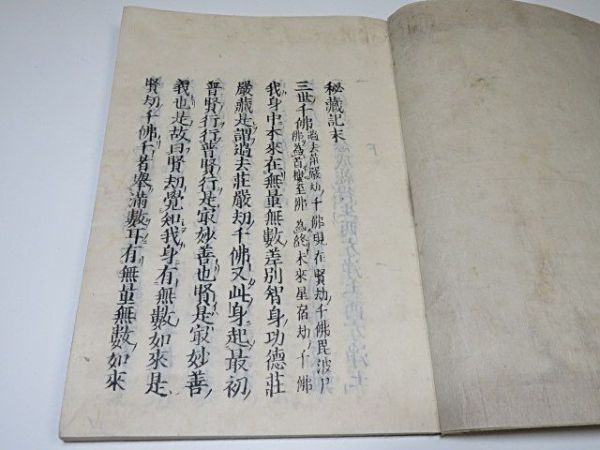 秘藏記末
三世千佛過去莊嚴劫千佛現在賢劫千佛毘波尸
佛為首樓至佛為終未來星宿劫千佛
我身中本來在無量無數差別智身功德莊
嚴藏是謂過去莊嚴劫千佛又此身起最初
普賢行行普賢行是最妙善也賢是最妙善
義也是故曰賢劫覺知我身有無數如來是
賢劫千佛千者舉滿數耳有無量無數如來